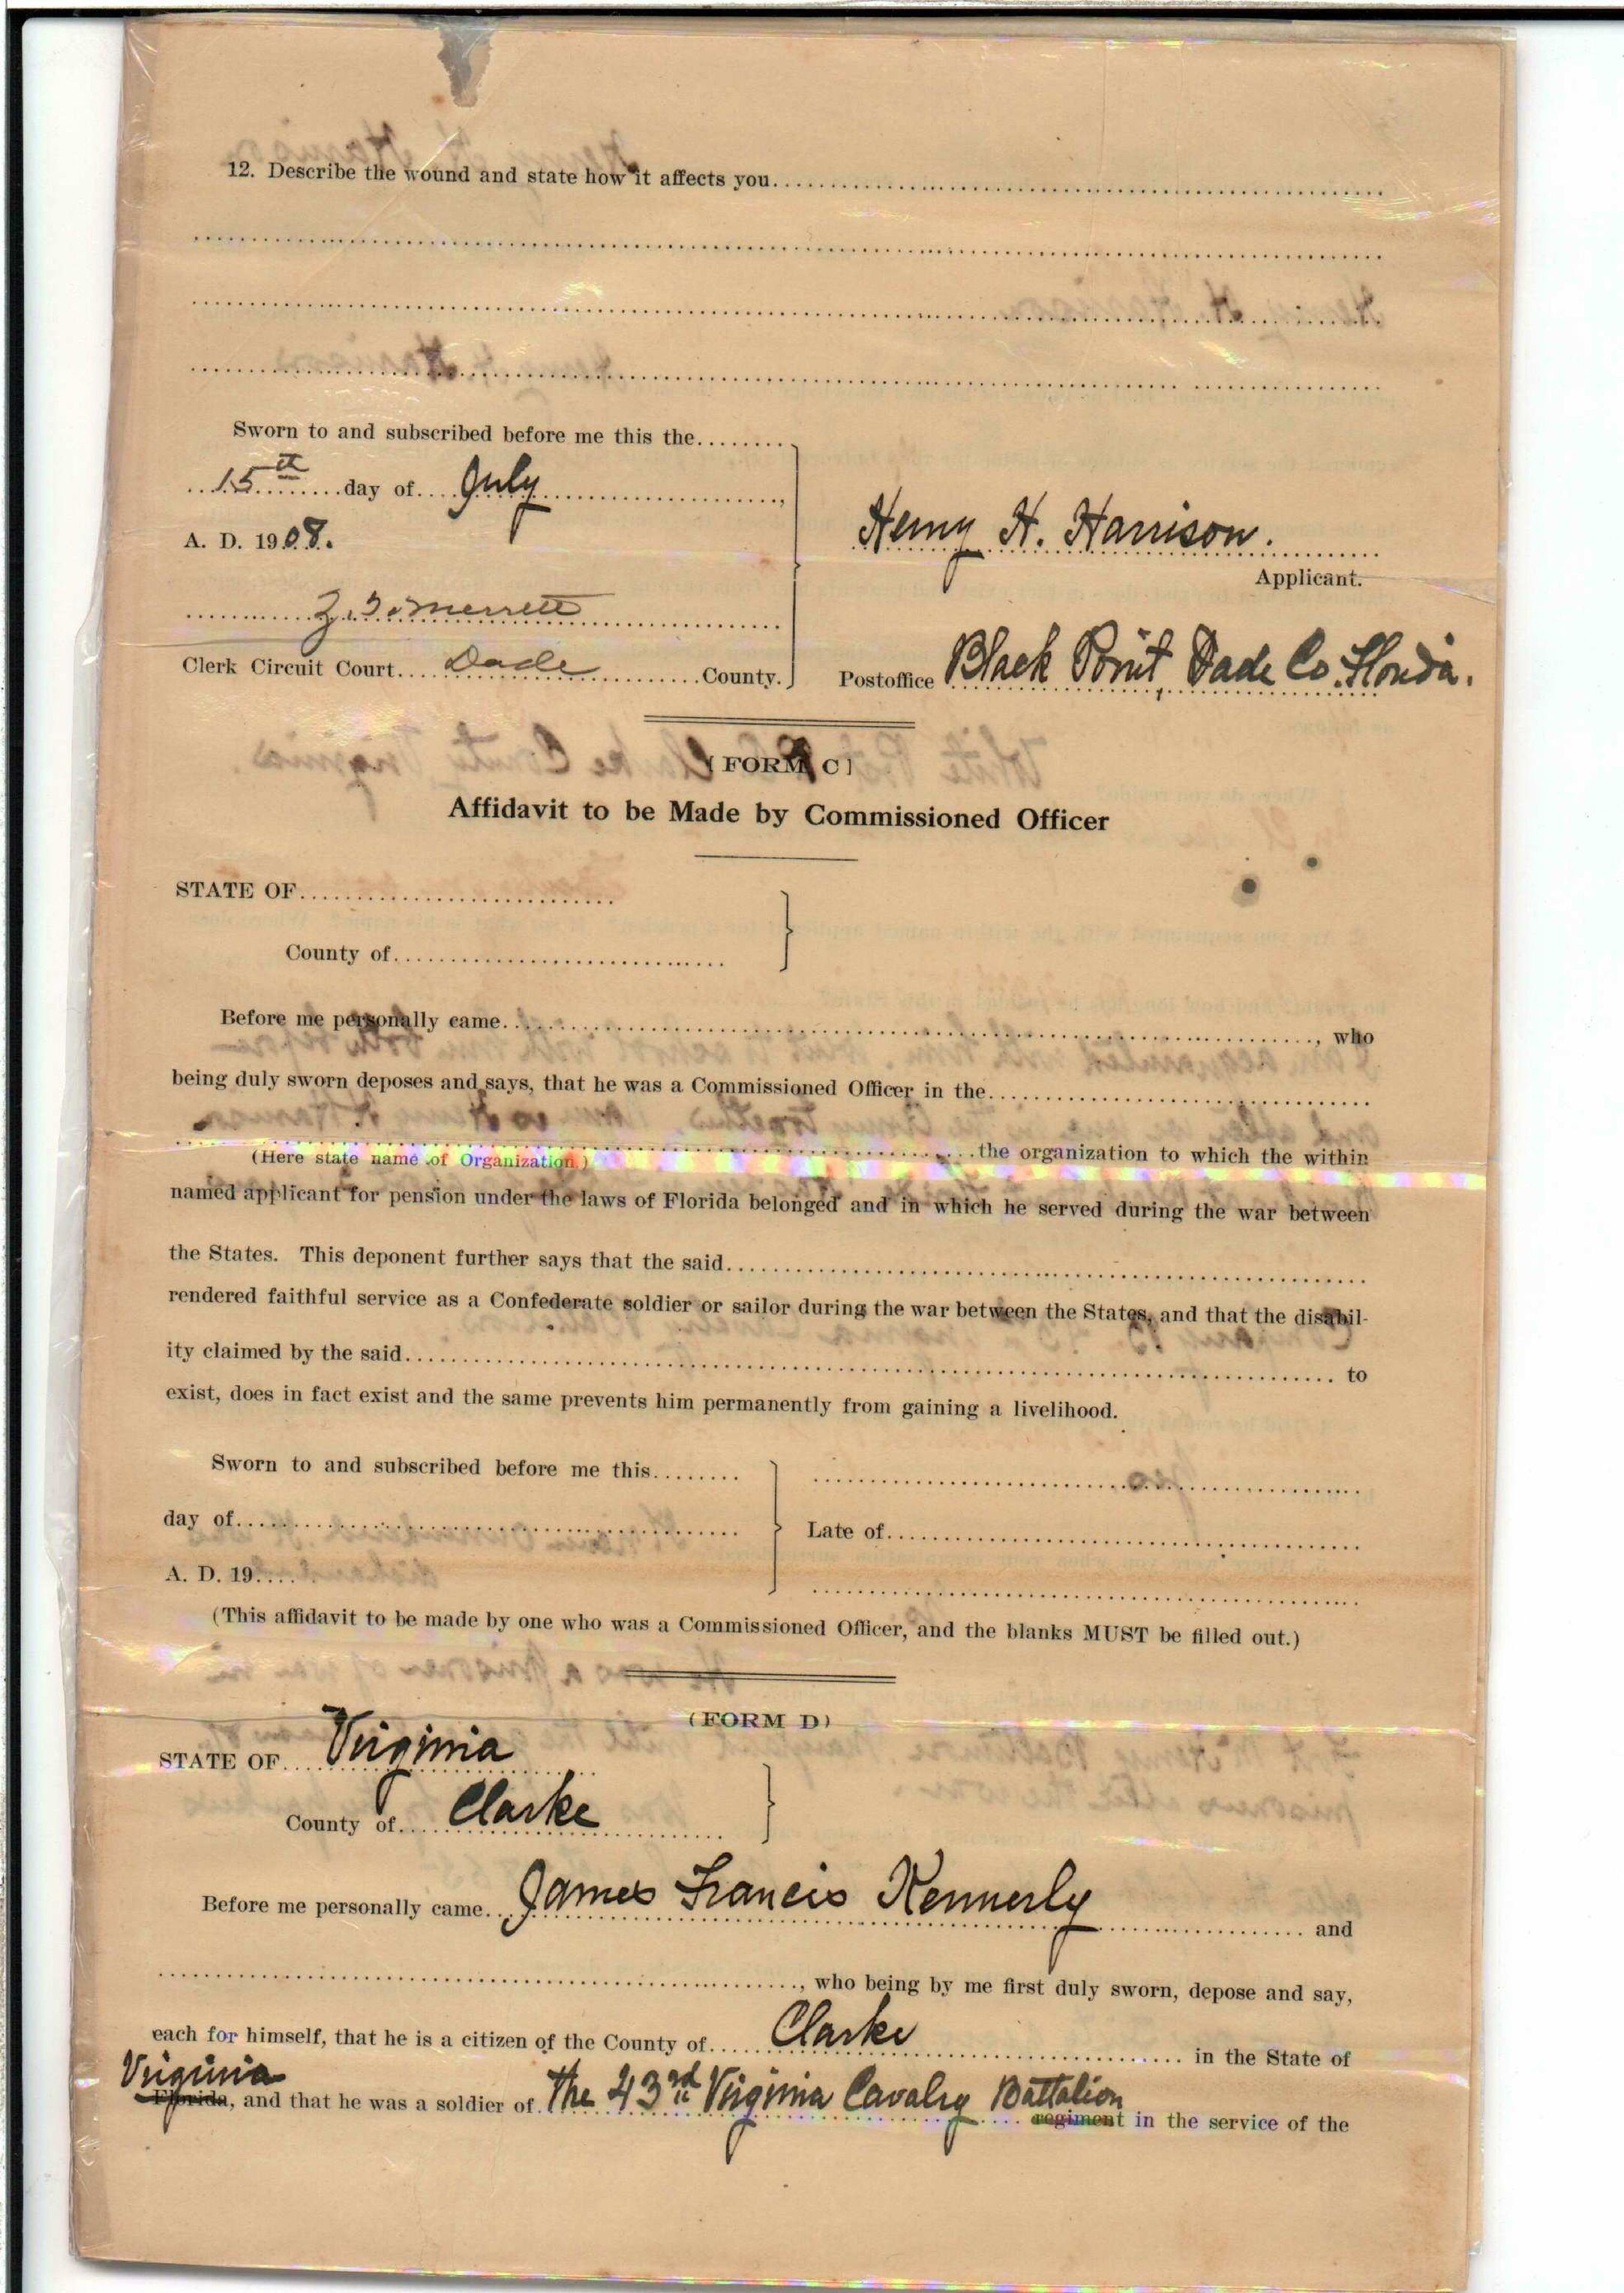 12. Describe the wound and state how it affects you
Sworn to and subscribed before me this the
15th day of July
A. D. 1908.
Henry H. Harrison.
Applicant.
Z. T. Merrett
Clerk Circuit Court Dade County.
Postoffice Black Point, Dade Co. Florida.
(FORM C)
Affidavit to be Made by Commissioned Officer
STATE OF
County of
Before me personally came, who
being duly sworn deposes and says, that he was a Commissioned Officer in the
the organization to which the within
(Here state name of Organization.)
named applicant for pension under the laws of Florida belonged and in which he served during the war between
the States. This deponent further says that the said
rendered faithful service as a Confederate soldier or sailor during the war between the States, and that the disabil-
ity claimed by the said to
exist, does in fact exist and the same prevents him permanently from gaining a livelihood.
Sworn to and subscribed before me this
day of
Late of
A. D. 19
(This affidavit to be made by one who was a Commissioned Officer, and the blanks MUST be filled out.)
(FORM D)
STATE OF Virginia
County of Clarke
Before me personally came James Francis Kennerly and
, who being by me first duly sworn, depose and say,
each for himself, that he is a citizen of the County of Clarke in the State of
Virginia
Florida, and that he was a soldier of the 43rd Virginia Cavalry Battalion regiment in the service of the